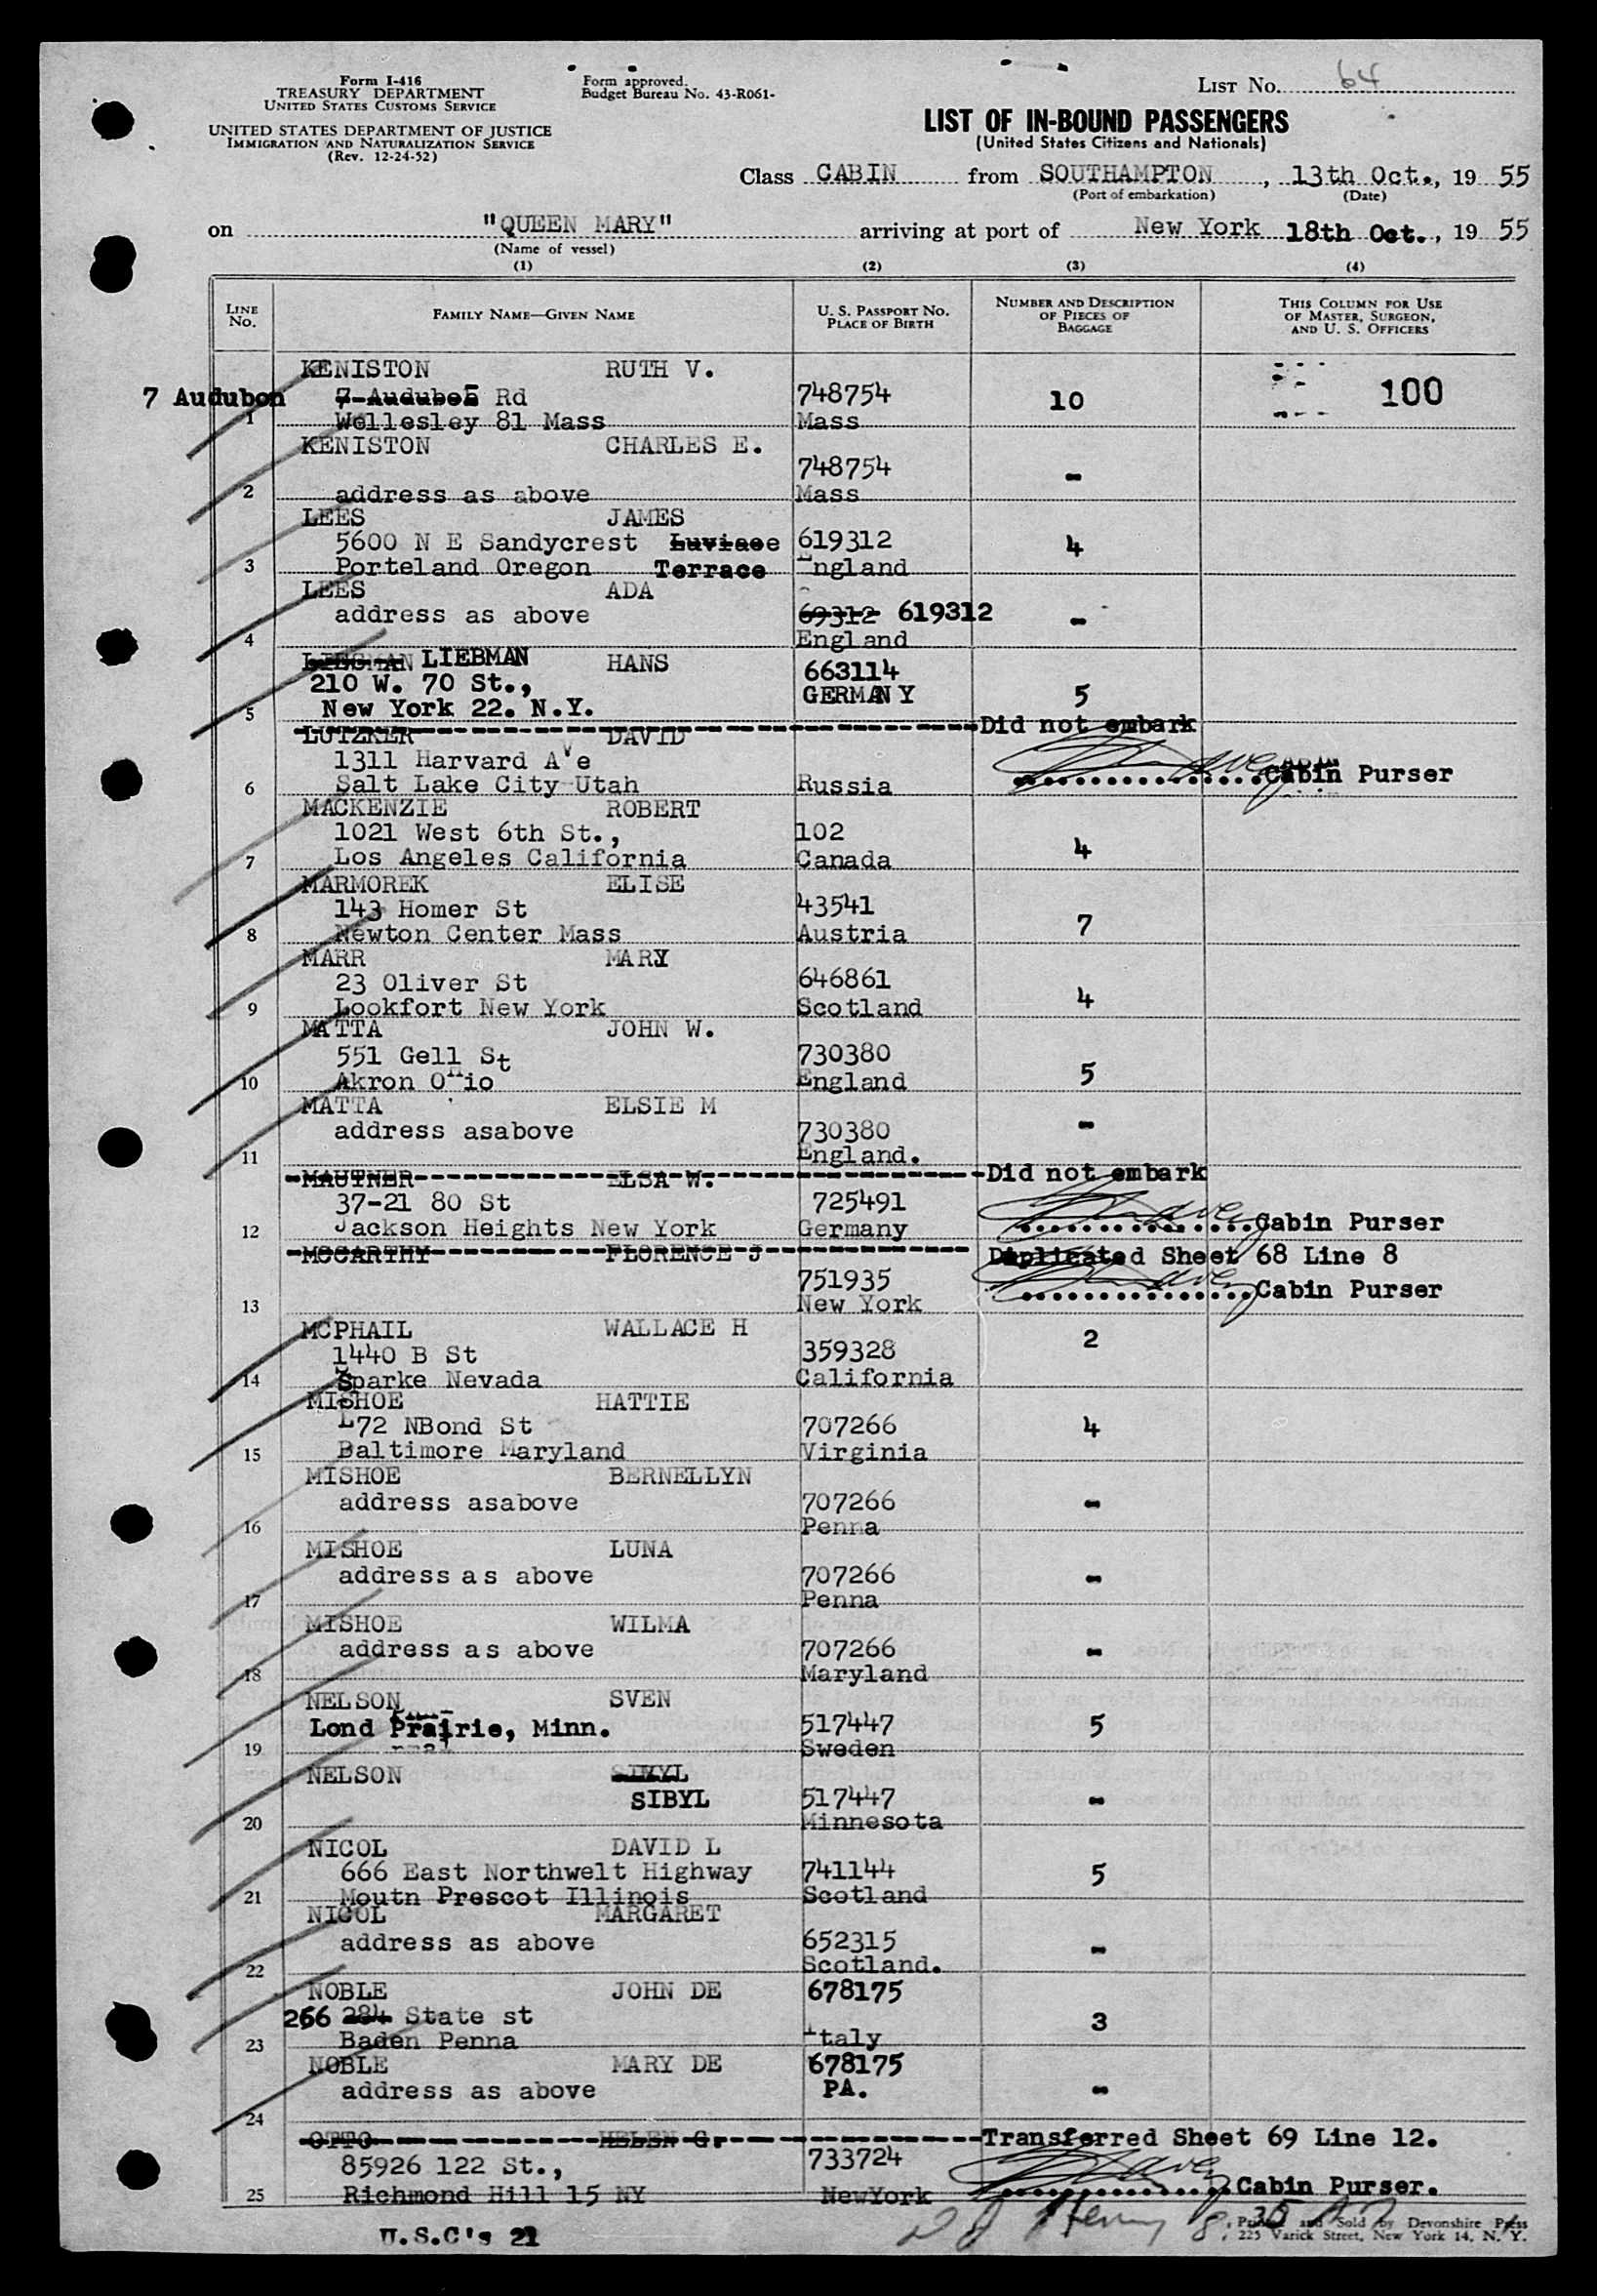 Form I-416
TREASURY DEPARTMENT
UNITED STATES CUSTOMS SERVICE
UNITED STATES DEPARTMENT OF JUSTICE
IMMIGRATION AND NATURALIZATION SERVICE
(Rev. 12-24-52)
Form approved.
Budget Bureau No. 43-R061-
LIST No. 64
LIST OF IN-BOUND PASSENGERS
(United States Citizens and Nationals)
Class CABIN from SOUTHAMPTON, 13th Oct., 19 55
(Port of embarkation) (Date)
on "QUEEN MARY" arriving at port of New York 18th Oct., 19 55
(Name of vessel)
(1) (2) (3) (4)
LINE No. FAMILY NAME—GIVEN NAME U. S. PASSPORT NO. PLACE OF BIRTH NUMBER AND DESCRIPTION OF PIECES OF BAGGAGE THIS COLUMN FOR USE OF MASTER, SURGEON, AND U. S. OFFICERS
KENISTON RUTH V.
7 Audubon Rd 748754 10 100
1 Wellesley 81 Mass Mass
KENISTON CHARLES E.
748754 -
2 address as above Mass
LEES JAMES
5600 N E Sandycrest 619312 4
3 Porteland Oregon Terrace England
LEES ADA
address as above 69312 619312 -
4 England
LIEBMAN HANS 663114
210 W. 70 St., GERMANY 5
5 New York 22. N.Y.
Did not embark
LUTZKER DAVID
1311 Harvard Ave Cabin Purser
6 Salt Lake City Utah Russia
MACKENZIE ROBERT
1021 West 6th St., 102 4
7 Los Angeles California Canada
MARMOREK ELISE
143 Homer St 43541 7
8 Newton Center Mass Austria
MARR MARY
23 Oliver St 646861 4
9 Lookfort New York Scotland
MATTA JOHN W.
551 Gell St 730380 5
10 Akron OHio England
MATTA ELSIE M
address asabove 730380 -
11 England.
MAUTNER ELSA W. Did not embark
37-21 80 St 725491
12 Jackson Heights New York Germany Cabin Purser
MCCARTHY FLORENCE J Duplicated Sheet 68 Line 8
751935 Cabin Purser
13 New York
MCPHAIL WALLACE H 2
1440 B St 359328
14 Sparke Nevada California
MISHOE HATTIE
72 NBond St 707266 4
15 Baltimore Maryland Virginia
MISHOE BERNELLYN
address asabove 707266 -
16 Penna
MISHOE LUNA
address as above 707266 -
17 Penna
MISHOE WILMA
address as above 707266 -
18 Maryland
NELSON SVEN
Lond Prairie, Minn. 517447 5
19 Sweden
NELSON
SIBYL 517447 -
20 Minnesota
NICOL DAVID L
666 East Northwelt Highway 741144 5
21 Moutn Prescot Illinois Scotland
NICOL MARGARET
address as above 652315 -
22 Scotland.
NOBLE JOHN DE 678175
266 284 State st 3
23 Baden Penna Italy
NOBLE MARY DE 678175
address as above PA. -
24
OTTO HELEN G. Transferred Sheet 69 Line 12.
85926 122 St., 733724
25 Richmond Hill 15 NY NewYork Cabin Purser.
U.S.C's 21
Printed and Sold by Devonshire Press
225 Varick Street, New York 14, N. Y.